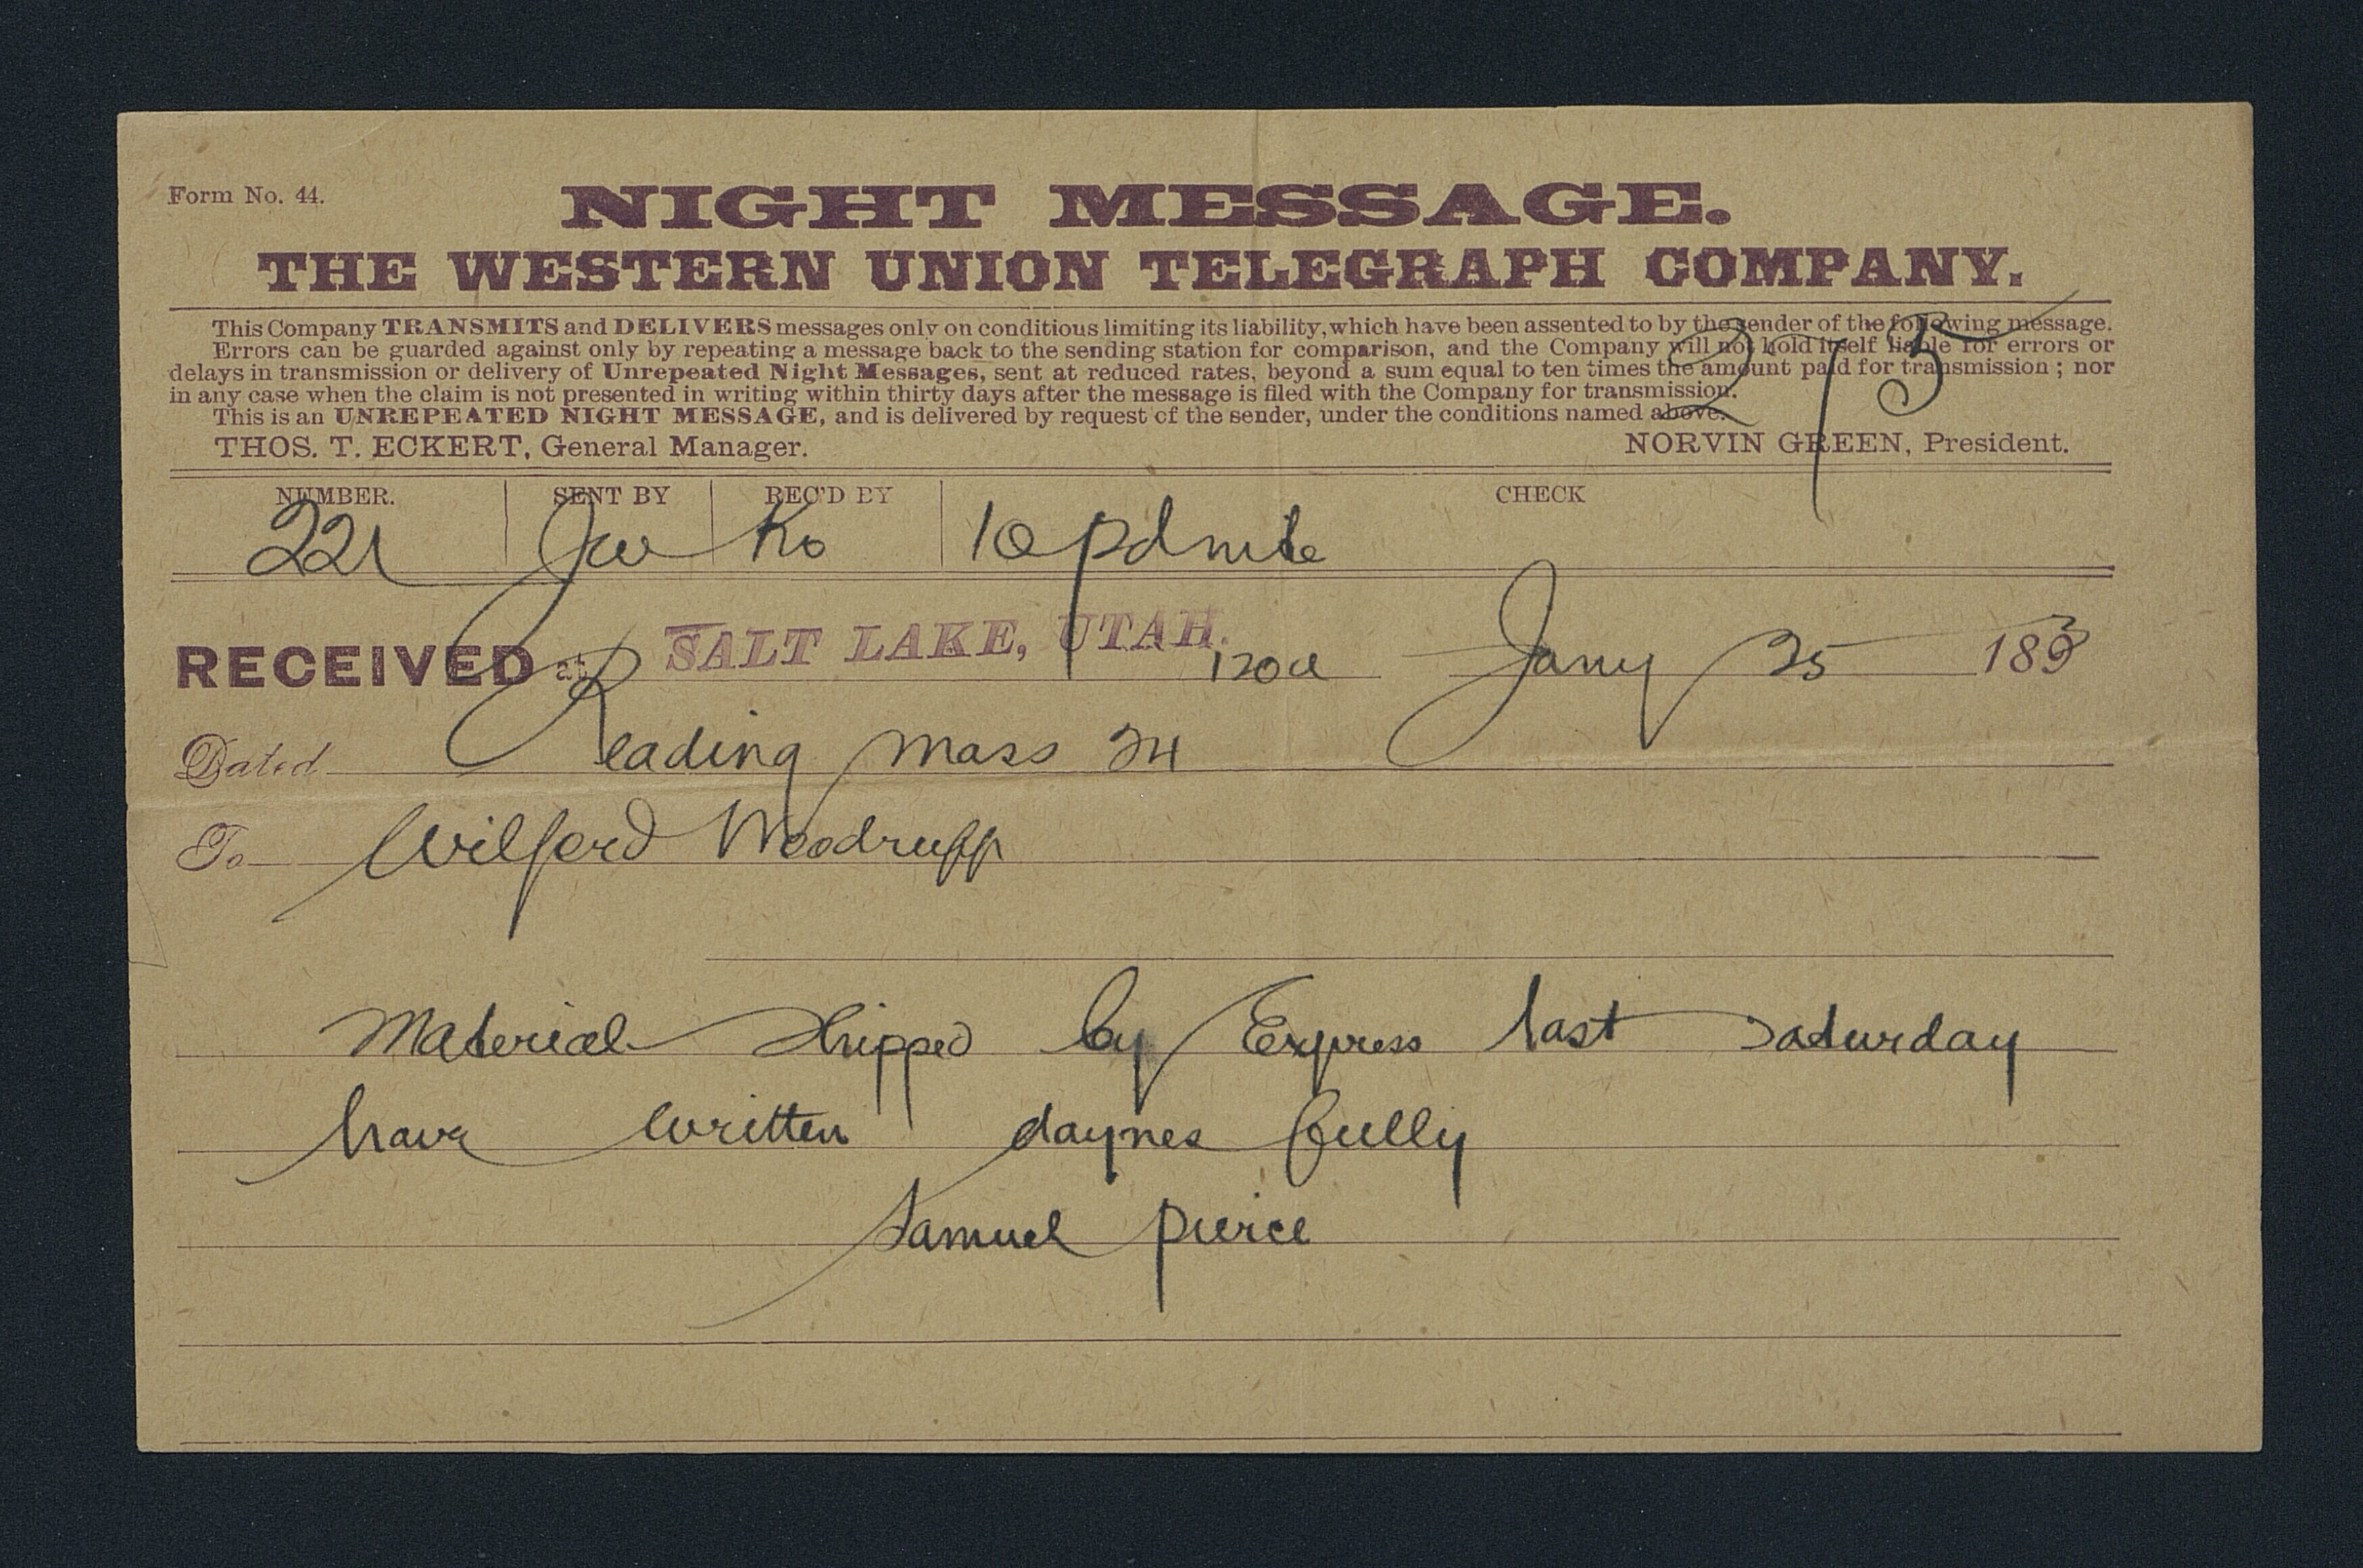 Form No. 44.
NIGHT MESSAGE.
THE WESTERN UNION TELEGRAPH COMPANY.
This Company TRANSMITS and DELIVERS messages only on conditions limiting its liability, which have been assented to by the sender of the following message.
Errors can be guarded against only by repeating a message back to the sending station for comparison, and the Company will not hold itself liable for errors or
delays in transmission or delivery of Unrepeated Night Messages, sent at reduced rates, beyond a sum equal to ten times the amount paid for transmission; nor
in any case when the claim is not presented in writing within thirty days after the message is filed with the Company for transmission.
This is an UNREPEATED NIGHT MESSAGE, and is delivered by request of the sender, under the conditions named above.
THOS. T. ECKERT, General Manager. NORVIN GREEN, President.
NUMBER. SENT BY REC'D BY CHECK
221 Jw Ko 10 pd nite
RECEIVED at SALT LAKE, UTAH. 120a Jany 25 1893
Dated Reading Mass 24
To Wilford Woodruff
Material Shipped by Express last Saturday
have written daynes fully
Samuel Pierce